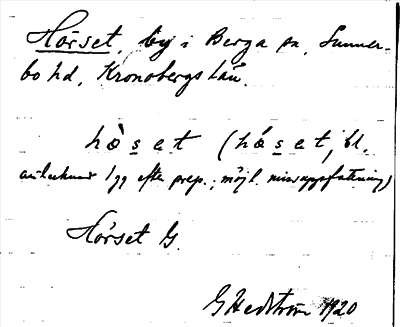 Hörset, by i Berga sn, Sunner-
bo hd, Kronobergs län.
hò̈s̱et (hǿs̱et, bl.
antecknar 1 gg efter prep.; möjl. missuppfattning)
Hörset G.
G Hedström 1920